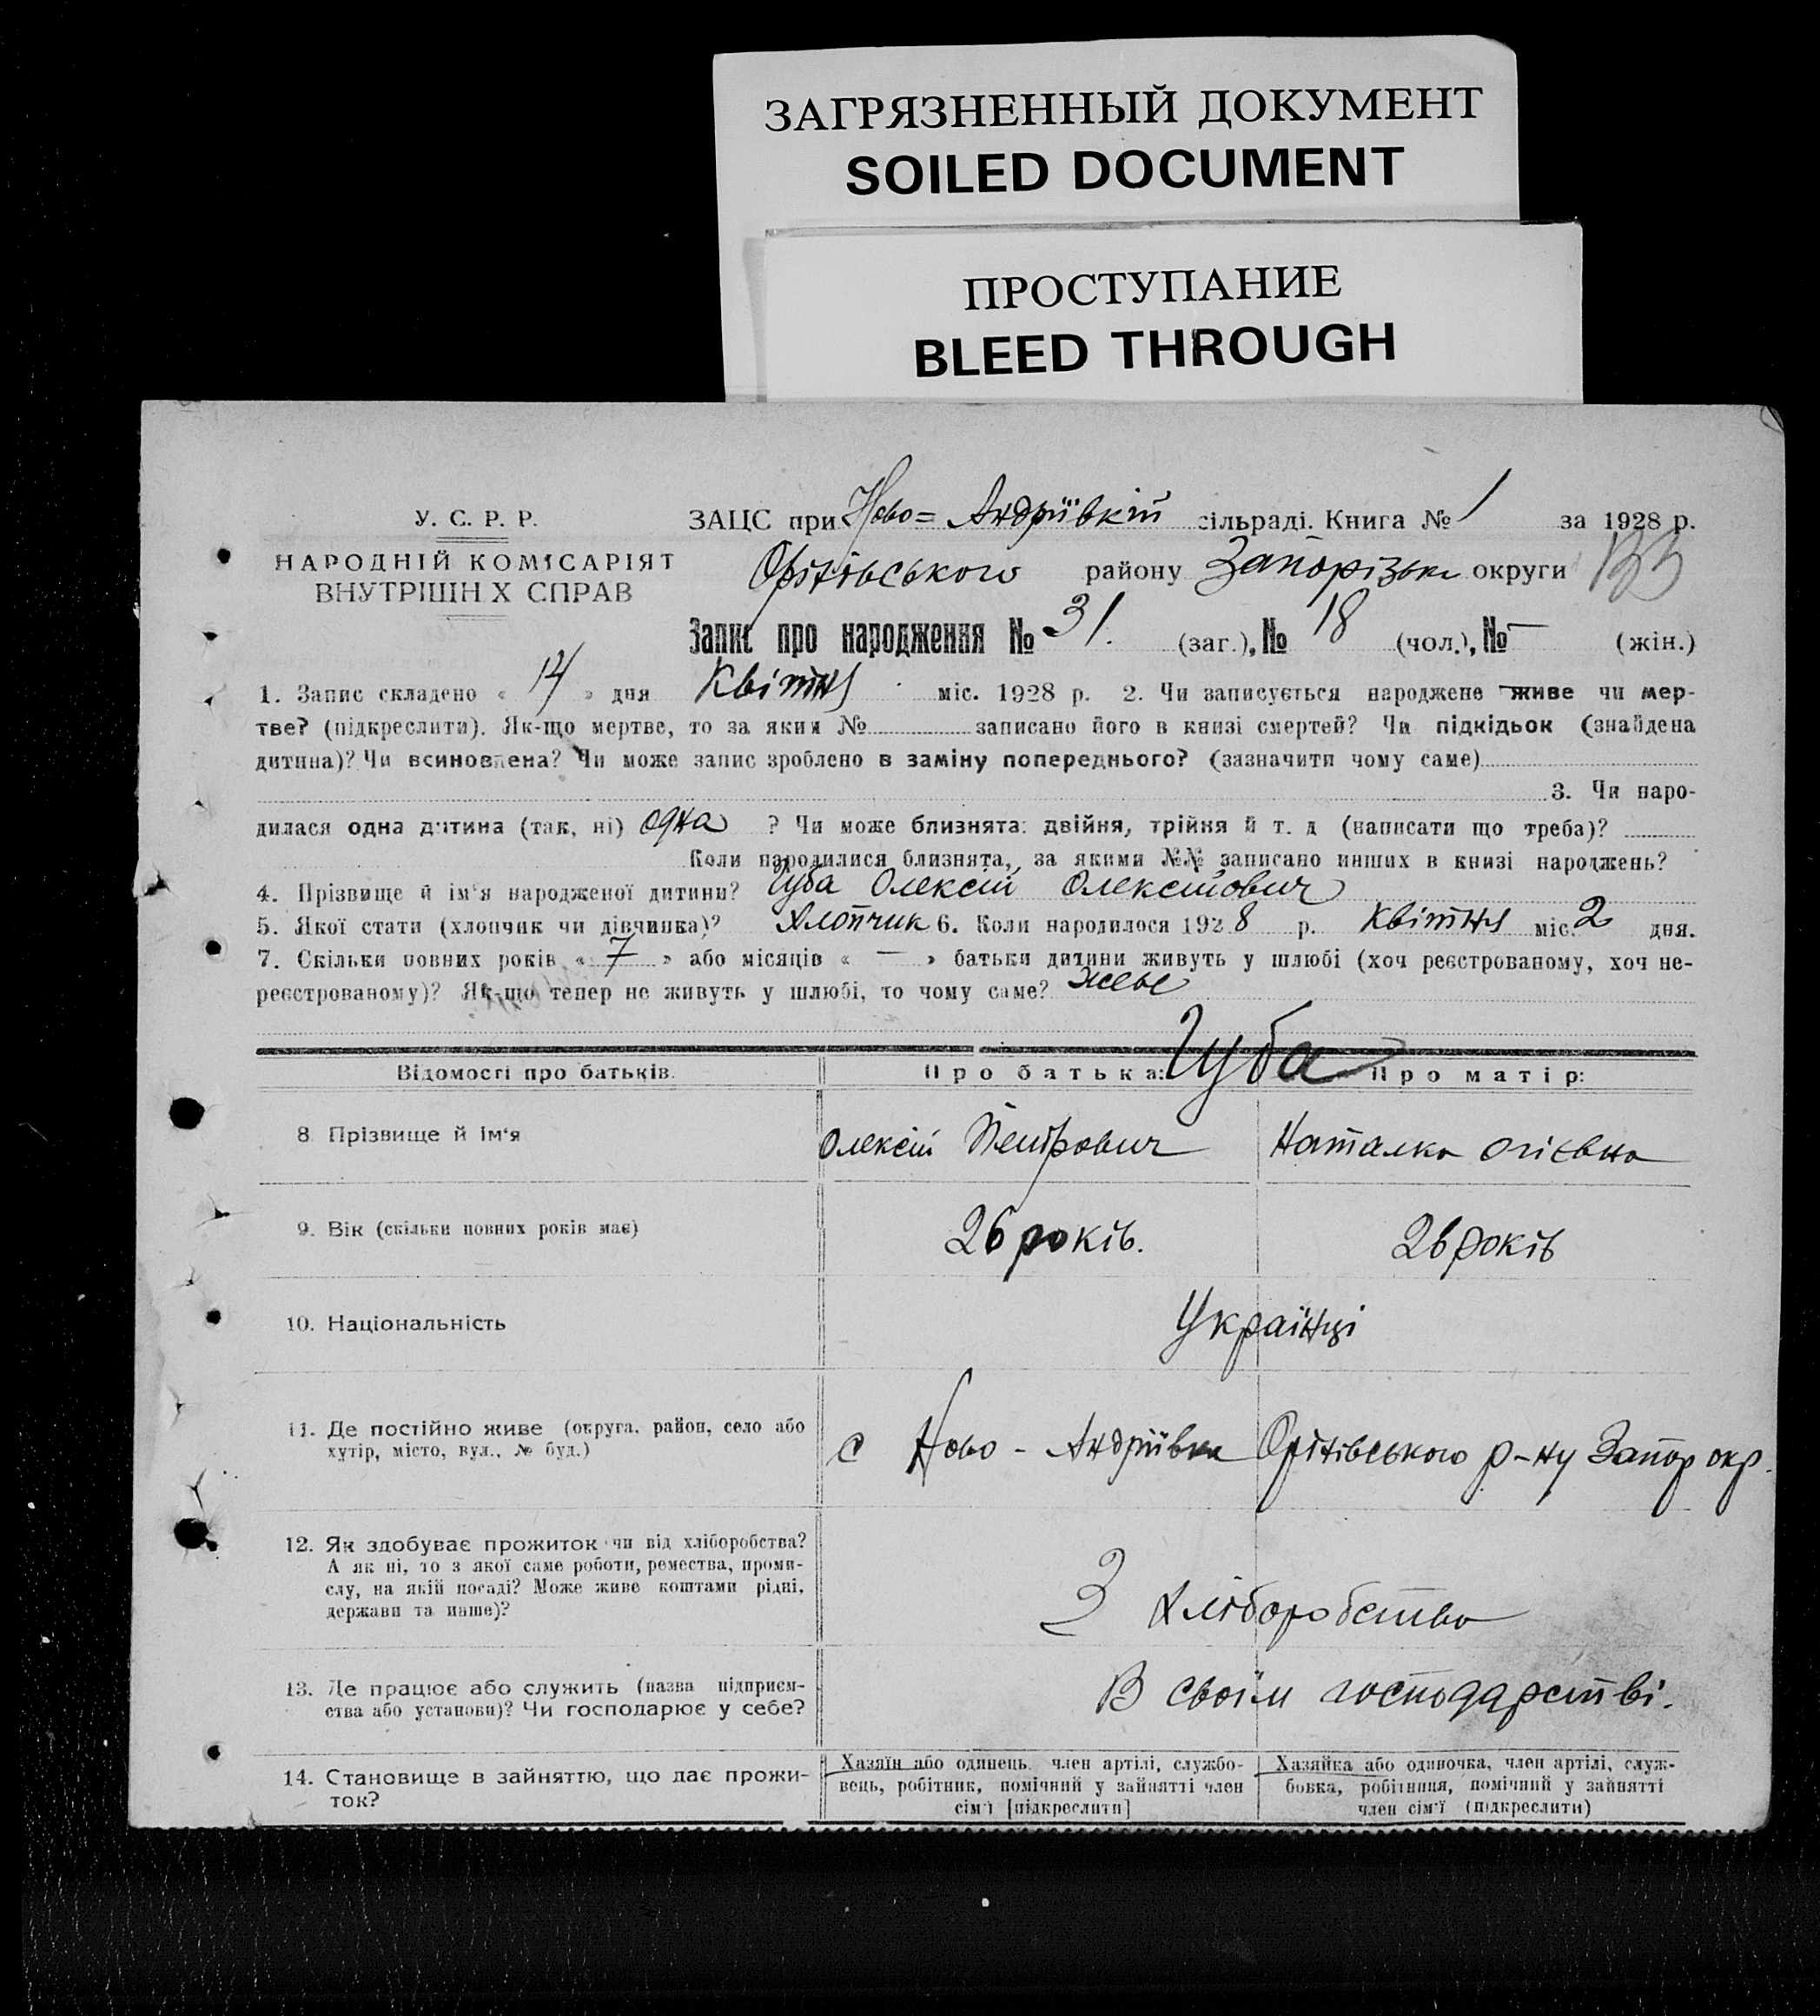 ЗАГРЯЗНЕННЫЙ ДОКУМЕНТ
SOILED DOCUMENT
ПРОСТУПАНИЕ
BLEED THROUGH
У. С. Р. Р.
НАРОДНІЙ КОМІСАРІЯТ
ВНУТРІШН Х СПРАВ
ЗАЦС при Ново= Андріївкій сільраді. Книга № 1 за 1928 р.
Оріхівського району Запорізьк округи
Запис про народження № 31. (заг.), № 18 (чол.), № — (жін.)
1. Запис складено « 14 » дня Квітня міс. 1928 р. 2. Чи записується народжене живе чи мер-
тве? (підкреслити). Як-що мертве, то за яким № записано його в книзі смертей? Чи підкідьок (знайдена
дитина)? Чи всиновлена? Чи може запис зроблено в заміну попереднього? (зазначити чому саме)
3. Чи наро-
дилася одна дитина (так, ні) одна ? Чи може близнята: двійня, трійня й т. д (написати що треба)?
Коли народилися близнята, за якими №№ записано инших в книзі народжень?
4. Прізвище й ім'я народженої дитини? Чуба Олексій Олексійович
5. Якої стати (хлопчик чи дівчинка)? Хлопчик 6. Коли народилося 1928 р. Квітня міс. 2 дня.
7. Скільки повних років « 7 » або місяців « — » батьки дитини живуть у шлюбі (хоч реєстрованому, хоч не-
реєстрованому)? Як-що тепер не живуть у шлюбі, то чому саме?
Чуба
Відомості про батьків. Про батька: Про матір:
8 Прізвище й ім'я Олексій Петрович Наталка Огієвна
9. Вік (скільки повних років має) 26 років. 26 років
10. Національність Українці
11. Де постійно живе (округа, район, село або
хутір, місто, вул., № буд.) с Ново - Андріївка Оріхівського р-ну Запор окр.
12. Як здобуває прожиток чи від хліборобства?
А як ні, то з якої саме роботи, ремества, проми-
слу, на якій посаді? Може живе коштами рідні,
держави та инше)? З хліборобства
13. Де працює або служить (назва підприєм-
ства або установи)? Чи господарює у себе? В своїм господарстві.
14. Становище в зайняттю, що дає прожи-
ток?
Хазяїн або одинець, член артілі, службо-
вець, робітник, помічний у зайнятті член
сім'ї [підкреслити]
Хазяйка або одиночка, член артілі, служ-
бовка, робітниця, помічний у зайнятті
член сім'ї (підкреслити)